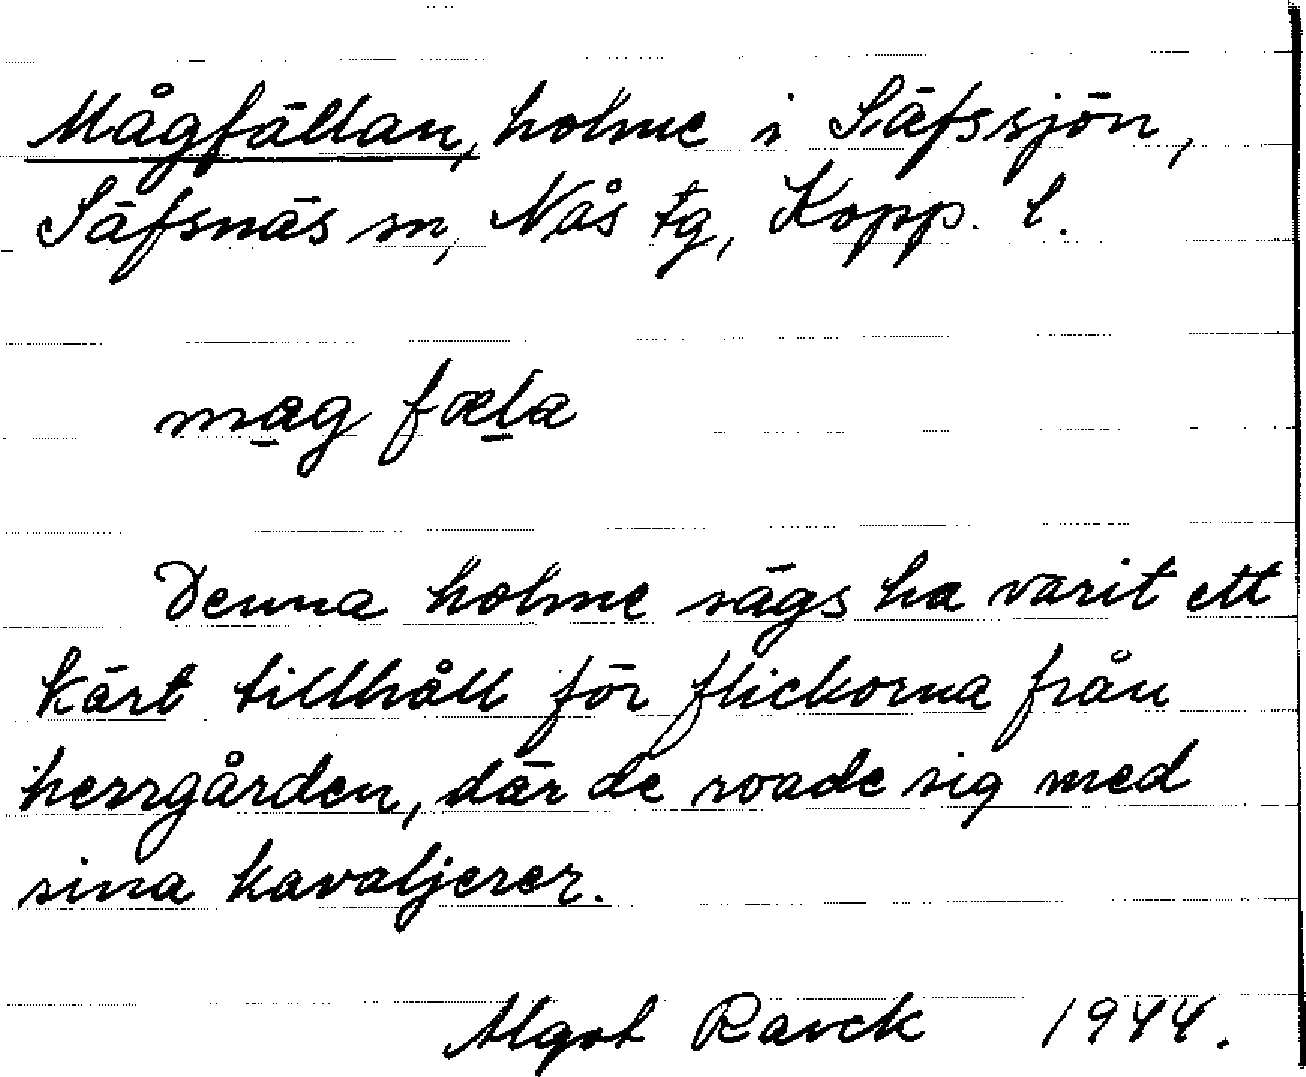 Mågfällan, holme i Säfssjön,
Säfsnäs sn, Nås tg, Kopp. l.
mag fæla
Denna holme sägs ha varit ett
kärt tillhåll för flickorna från
herrgården, där de roade sig med
sina kavaljerer.
Algot Ravck 1944.